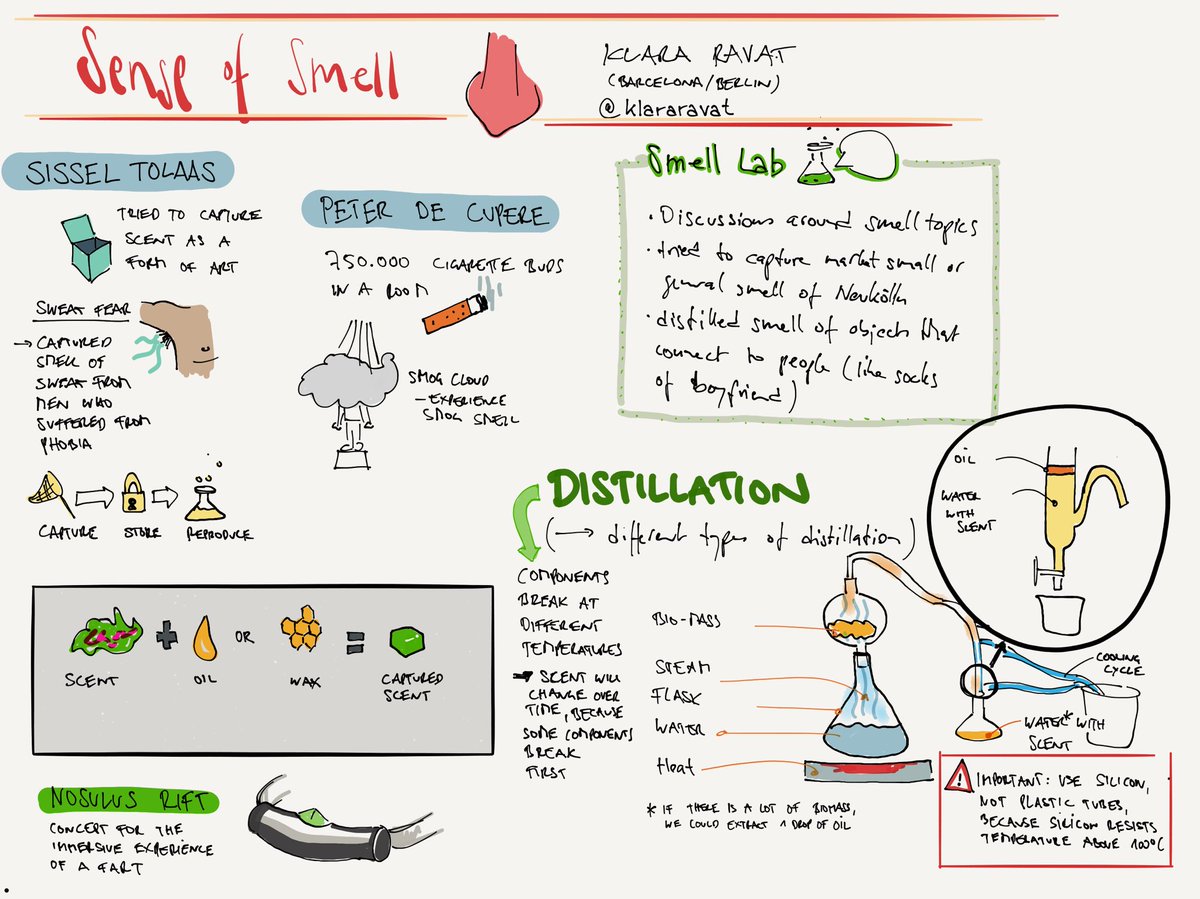 Sense of Smell
KLARA RAVAT
(BARCELONA/BERLIN)
@klararavat
SISSEL TOLAAS
TRIED TO CAPTURE
SCENT AS A
FORM OF ART
SWEAT FEAR
→ CAPTURED
SMELL OF
SWEAT FROM
MEN WHO
SUFFERED FROM
PHOBIA
CAPTURE
STORE
REPRODUCE
PETER DE CUPERE
750.000 CIGARETTE BUDS
IN A ROOM
SMOG CLOUD
- EXPERIENCE
SMOG SMELL
Smell Lab
• Discussions around smell topics
• tried to capture market small or
general smell of Neukölln
• distilled smell of objects that
connect to people (like socks
of boyfriend)
SCENT
+
OIL
OR
WAX
=
CAPTURED
SCENT
NOSULUS RIFT
CONCEPT FOR THE
IMMERSIVE EXPERIENCE
OF A FART
DISTILLATION
(→ different types of distillation)
COMPONENTS
BREAK AT
DIFFERENT
TEMPERATURES
→ SCENT WILL
CHANGE OVER
TIME, BECAUSE
SOME COMPONENTS
BREAK
FIRST
BIO-MASS
STEAM
FLASK
WATER
Heat
* IF THERE IS A LOT OF BIOMASS,
WE COULD EXTRACT 1 DROP OF OIL
OIL
WATER
WITH
SCENT
COOLING
CYCLE
WATER* WITH
SCENT
! IMPORTANT: USE SILICON,
NOT PLASTIC TUBES,
BECAUSE SILICON RESISTS
TEMPERATURE ABOVE 100°C